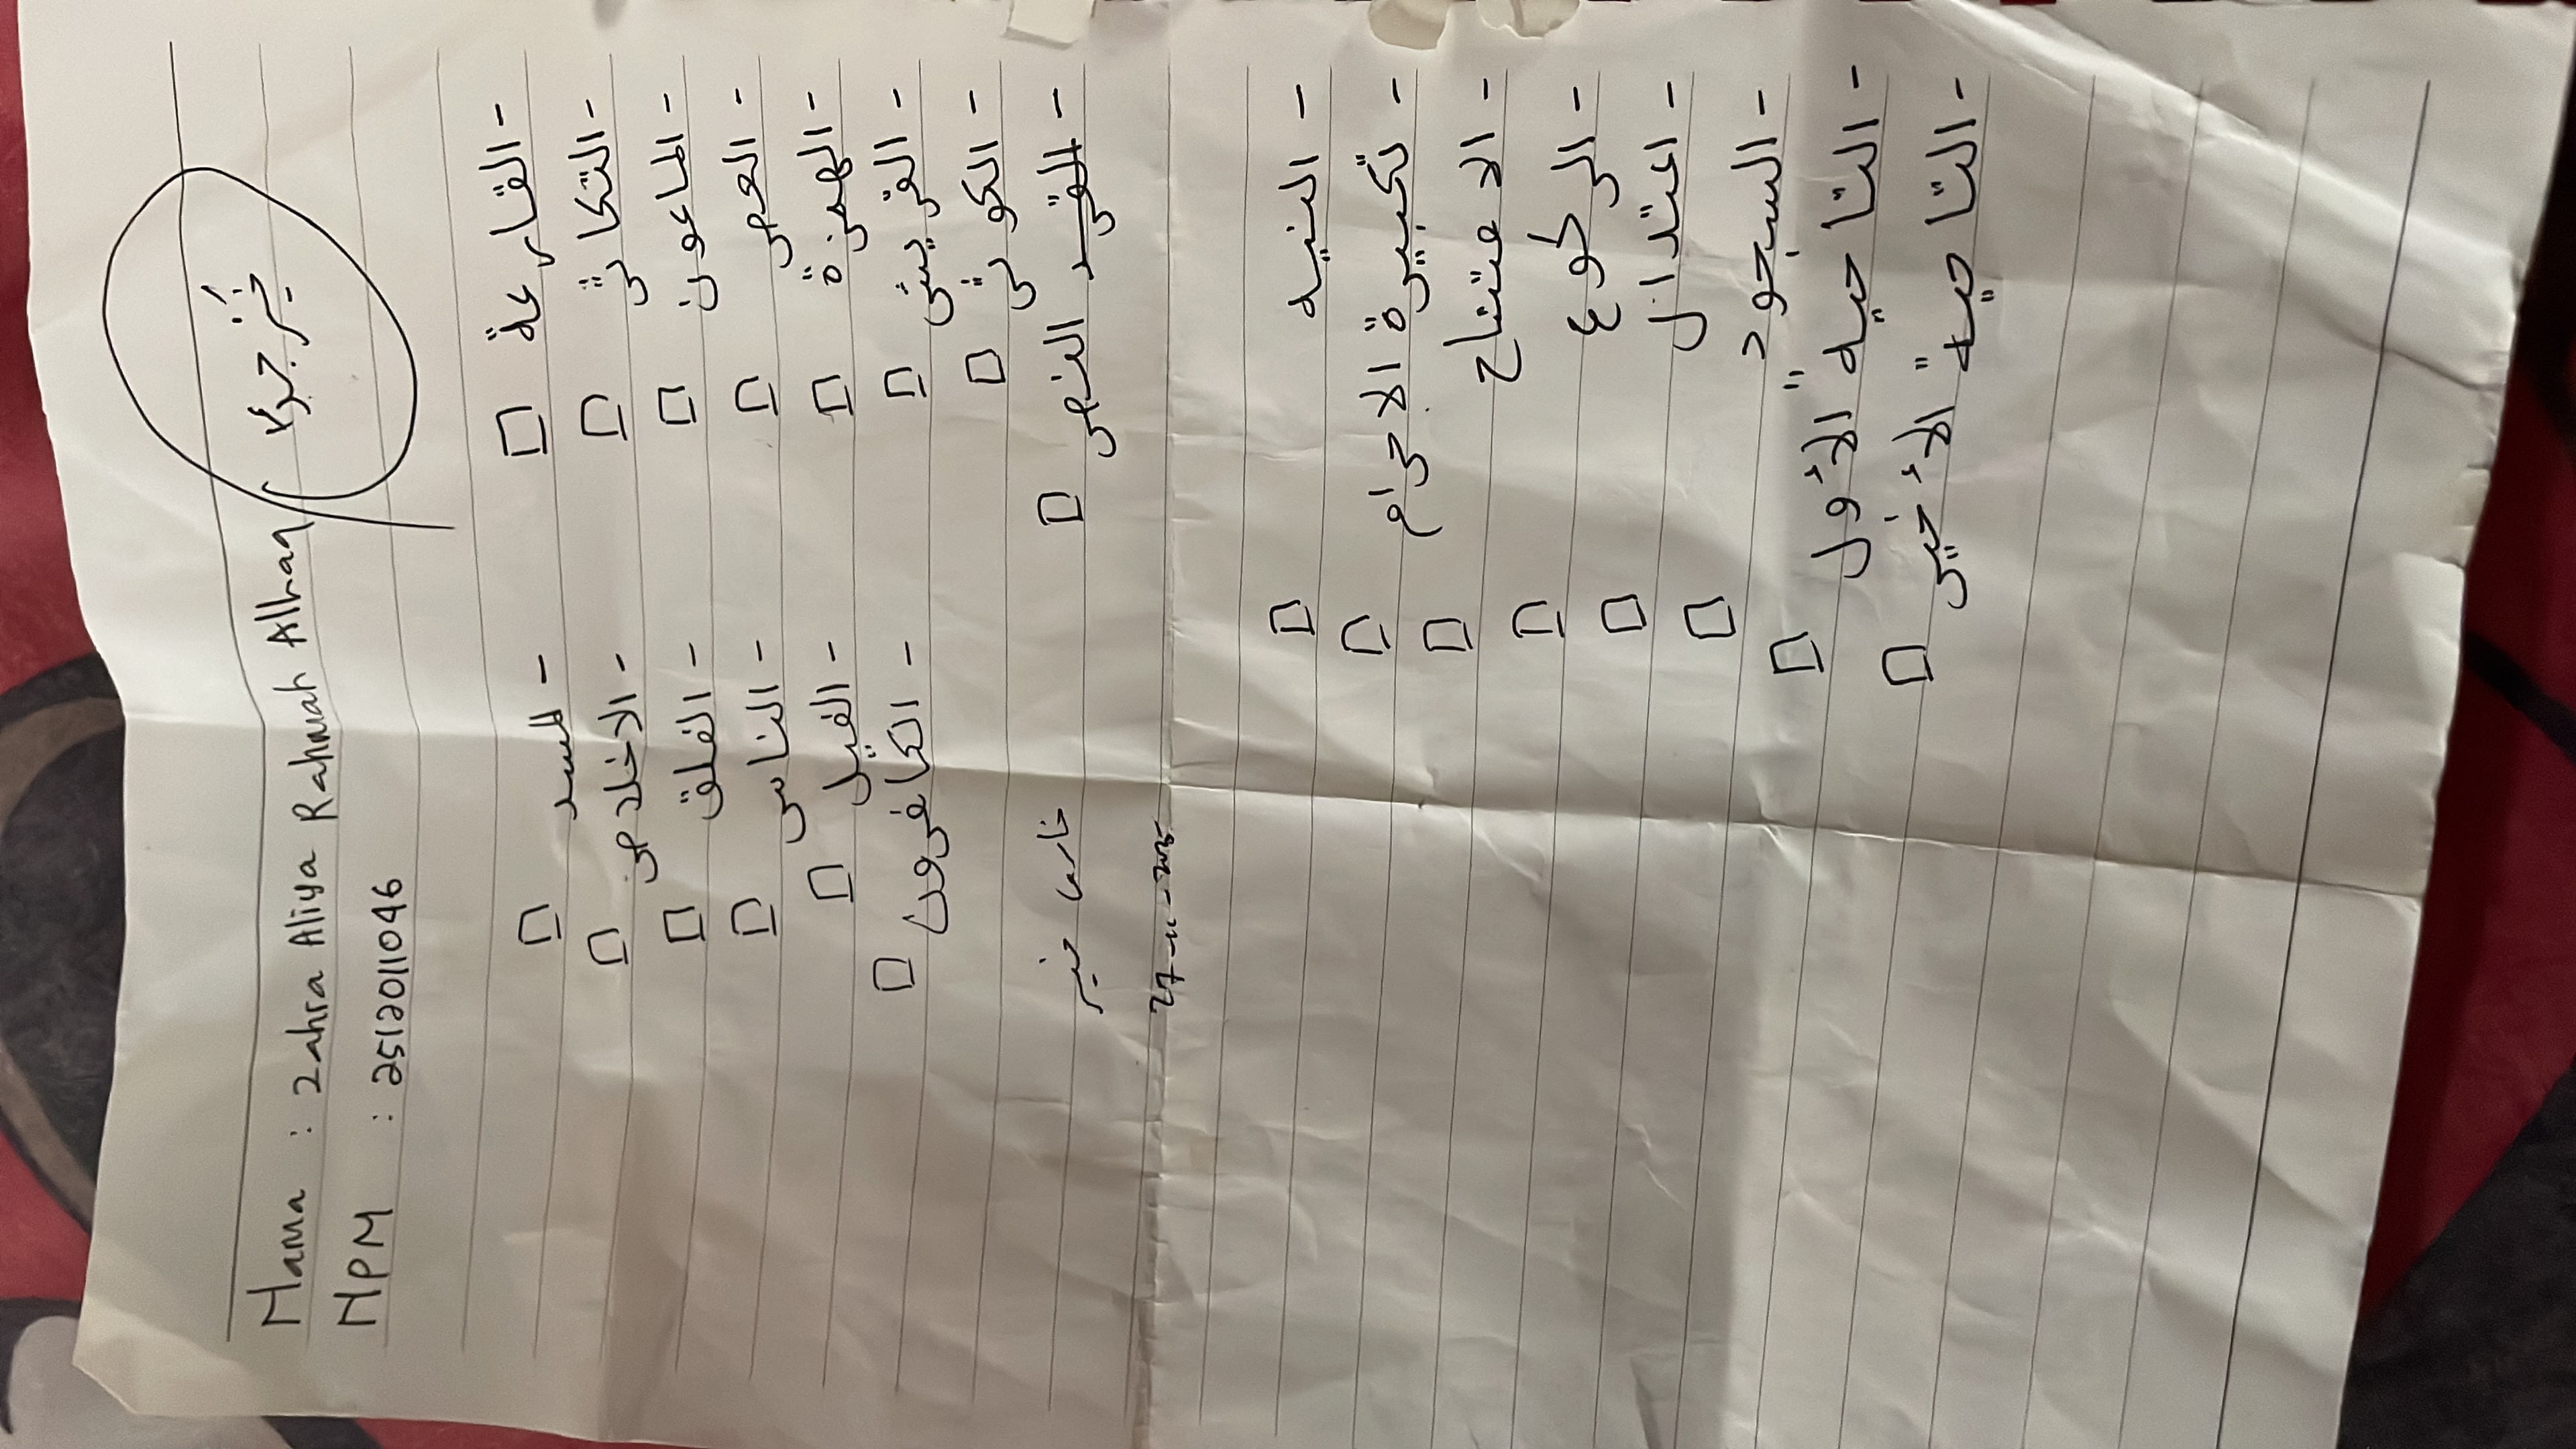 Nama : Zahra Aliya Rahmah Alhaq
NPM : 2512011046
- القارعة
- التكاثر
- الماعون
- العصر
- الهمزة
- القريش
- الكوثر
- النصر
- المسد
- الاخلاص
- الفلق
- الناس
- الفيل
- الكافرون
27-11-2025
- النيه
- تكبيرة الاحرام
- الافتتاح
- الركوع
- اعتدال
- السجود
- التاحيه الأول
- التاحيه الأخير